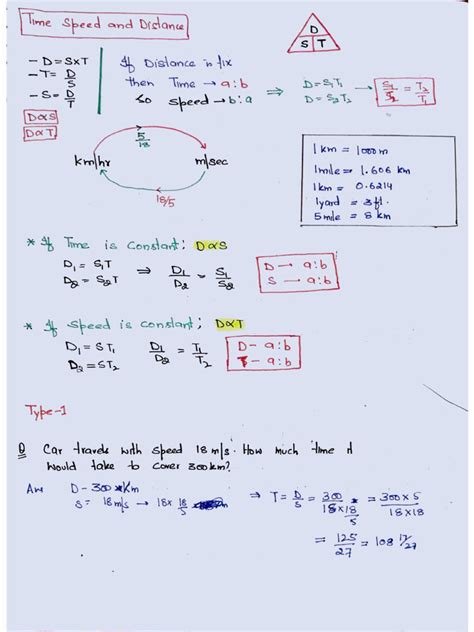 Time Speed and Distance
D
S T
- D = S×T
- T = D/S
- S = D/T
D∝S
D∝T
If Distance is fix
then Time → a:b
so speed → b:a
⇒ D = S₁T₁
D = S₂T₂
→ S₁/S₂ = T₂/T₁
5/18
km/hr m/sec
18/5
1 km = 1000 m
1 mile = 1.606 km
1 km = 0.6214
1 yard = 3 ft.
5 mile = 8 km
* If Time is Constant; D∝S
D₁ = S₁T
D₂ = S₂T
⇒ D₁/D₂ = S₁/S₂
D → a:b
S → a:b
* If Speed is constant; D∝T
D₁ = ST₁
D₂ = ST₂
D₁/D₂ = T₁/T₂
D - a:b
T - a:b
Type-1
Q Car travels with speed 18 m/s. How much time it
would take to cover 300 km?
Ans D - 300 Km
S = 18 m/s → 18× 18/5
⇒ T = D/S = 300/18×18/5 = 300×5/18×18
= 125/27 = 108 17/27